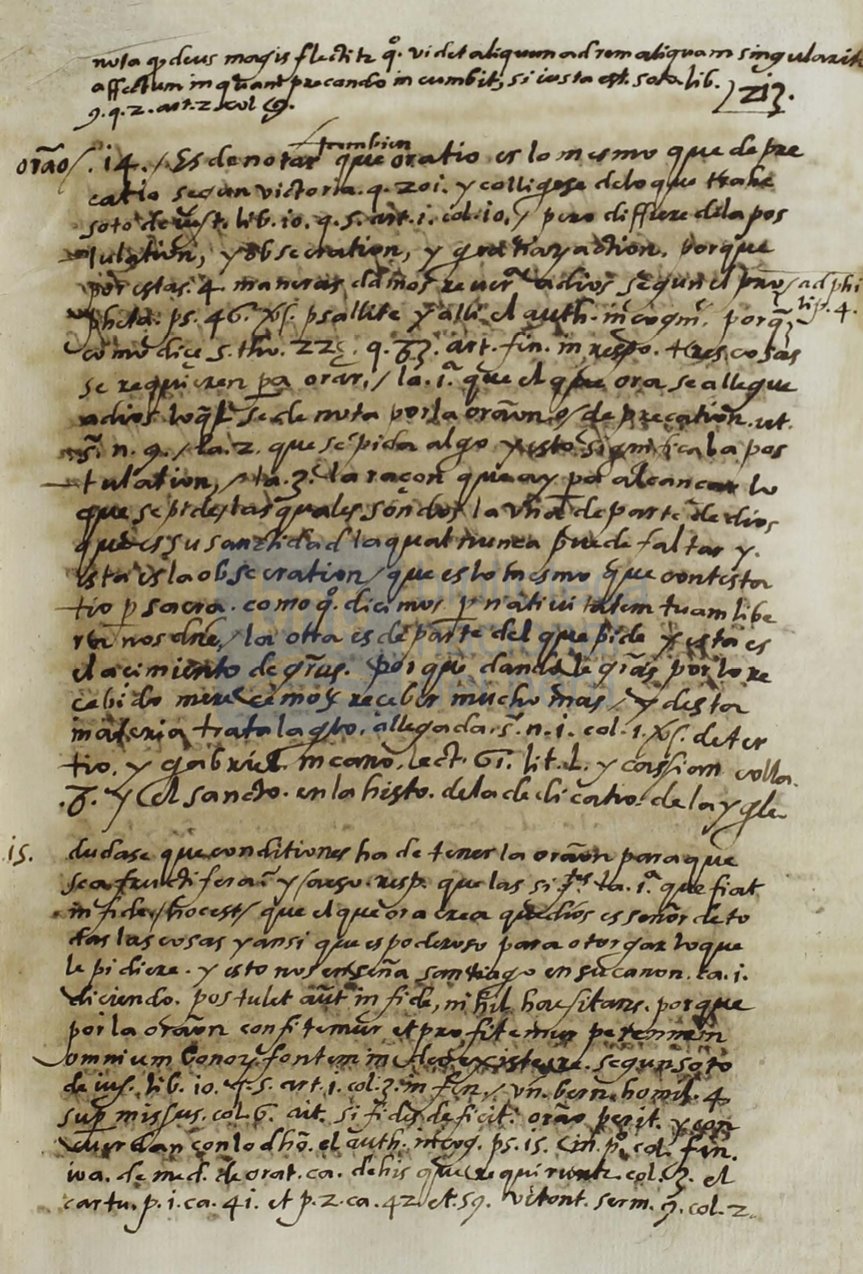 nota q deus magis flectitr qº. videt aliquem ad rem aliquam singularitr
affectum in quam precando incumbit, si iusta est. soto. lib.
9. q. 2. art. 2. col. 9.
213.
tambien
orão/. 14. / Es de notar que oratio es lo mesmo que depre
catio segun victoria. q. 201. y colligese de lo que trahe
soto de iust. lib. 10. q. 5. art. 1. col. 10. / pero differe de la pos
tulation, y obsecration, y gratiary action. porque
por estas. 4 maneras damos rever.ª a dios segun el
ad phi
lip. 4.
pheta. ps. 46. psallite y alli el auth. incogni. porq
como diçe s. tho. 22ę. q. 83. art. fin. in respo. tres cosas
se requieren pa orar, / la. 1.ª que el que ora se allegue
a dios loql se denota por la oraõn o / deprecation. ut.
s. n. 9. / la. 2. que se pida algo y esto significa la pos
tulation, / la. 3. la raçon que ay pa alcançar lo
que se pide / las quales son dos la vna de parte de dios
que es su sanctidad la qual nunca puede faltar y.
esta es la obsecration / que es lo mesmo que contesta
tio p sacra. como qº. dicimos p nativitatem tuam libe
ra nos dne, / la otra es de parte del que pide y esta es
el acimiento de gras. porque dandole gras por lo re
cebido mereçemos recebir mucho mas / y desta
materia trata la glo. allegada. s. n. 1. col. 1. de ter
tio. y gabriel in cano. lect. 61. lit. L. y cassian colla.
.9. y el sancto. en la histo. de la dedicatio. de la ygle.
.15. dudase que conditiones ha de tener la oraõn para que
sea fructifera y resp. que las sigtes la. 1.ª que fiat
in fide, / hoc est / que el que ora crea que dios es señor de to
das las cosas y ansi que es poderoso para otorgar lo que
le pidiere. y esto nos enseña santiago en su canon. ca. 1.
diciendo. postulet aut in fide, nihil haesitans. porque
por la oraõn confitemur et profitemur perennem
omnium bonor. fontem in deo existere. segun soto
de ius. lib. 10. q. 5. art. 1. col. 3. in fin, / vn. bern. homil. 4
sup missus. col. 6. ait. si fides deficit. orão perit. y con
cuerdan con lo dho. el auth. incog. ps. 15. in pº. col. fin.
ioa. de med. de orat. ca. de his que requirunt. col. 3. el
cartu. p. 1. ca. 41. et p. 2. ca. 42 et. 59. vitont. serm. 9. col. 2